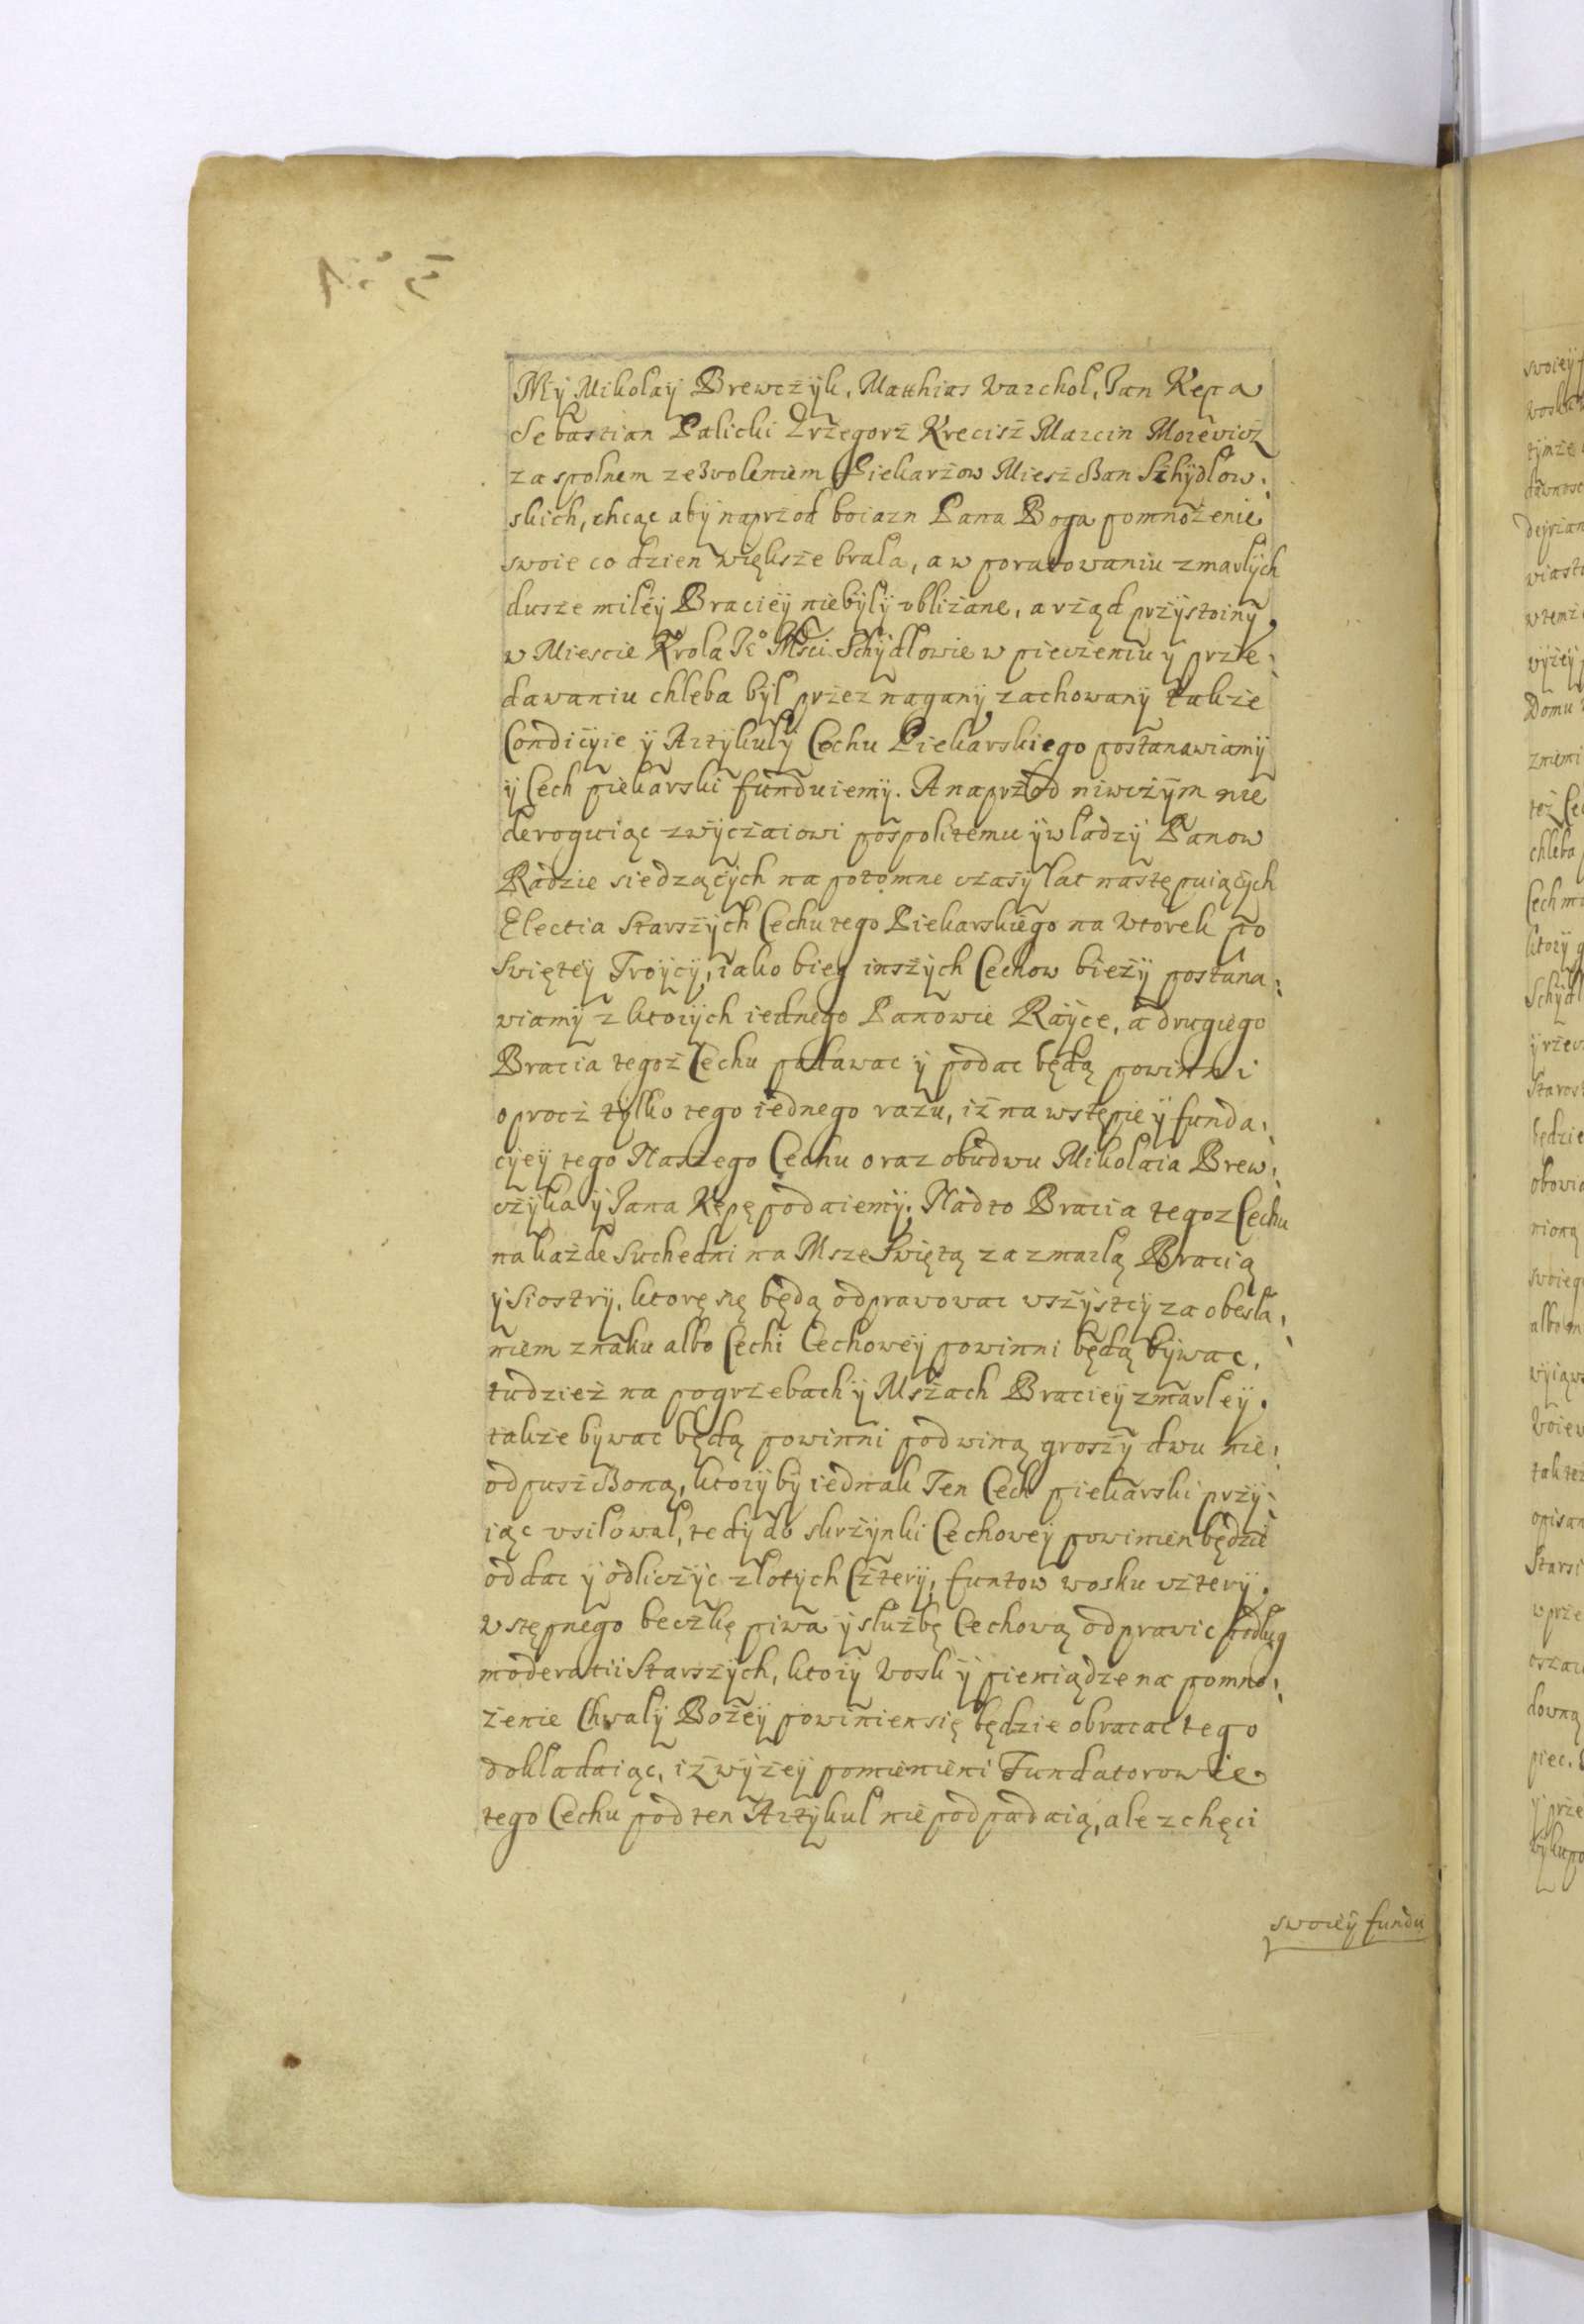 My Mikolaÿ Brewcżÿk, Matthias Warchoł, Jan Kępa
Sebastian Palicki Grżegorż Krecisż Marcin Morżewicż
za społnem zezwoleniem Piekarżow Miesżcżan Sżÿdłow:
skich, chcąc abÿ naprżod boiazn Pana Boga pomnożenie
swoie co dzien większe brała, a w poratowaniu zmarłÿch
dusże miłeÿ Bracieÿ niebÿłÿ ubliżane, a rżąd prżÿstoinÿ
w Miescie Krola Jeº Mści Schÿdłowie w piecżeniu ÿ prze:
dawaniu chleba bÿł przez naganÿ zachowanÿ także
Condicÿie ÿ Artÿkułÿ Cechu Piekarskiego postanawiamÿ
ÿ Cech piekarski funduiemÿ. A naprżod niwcżÿm nie
deroguiąc zwÿcżaiowi pospolitemu ÿ władzÿ Panow
Radzie siedzącÿch na potomne cżasÿ lat następuiącÿch
Electia Starsżÿch Cechu tego Piekarskiego na Wtorek po
Swięteÿ Troÿcÿ, iako bieg insżÿch Cechow bieżÿ postana:
wiamÿ z ktorÿch iednego Panowie Raÿce, a drugiego
Bracia tegoż Cechu podawac ÿ podac będą powinni
oprocż tÿlko tego iednego razu, iż na wstępie ÿ funda:
cÿeÿ tego Naszego Cechu oraz obudwu Mikolaia Brew:
cżÿka ÿ Jana Kępę podaiemÿ; Nadto Bracia tegoz Cechu
na każde Suchedni na Msze Swiętą za zmarłą Bracią
ÿ Siostrÿ, ktorę się będą odprawowac wsżÿstcÿ za obesła:
niem znaku albo Cechi Cechoweÿ powinni będą bÿwac,
tudzież na pogrżebach ÿ Msżach Bracieÿ zmarłeÿ.
takze bÿwac będą powinni pod winą grosżÿ dwu nie:
odpusżcżoną, ktorÿ bÿ iednak Ten Cech piekarski prżÿ:
iąc usiłował, tedÿ do skrżÿnki Cechoweÿ powinien będzie
oddac ÿ odlicżÿc złotÿch Cżterÿ, funtow wosku cżterÿ.
wstępnego becżkę piwa ÿ służbę Cechową odprawic podług
moderatii Starszÿch, ktorÿ Wosk ÿ pieniądze na pomno:
żenie Chwałÿ Bożeÿ powinien się będzie obracac tego
dokładaiąc, iż wÿżeÿ pomienieni Fundatorowie
tego Cechu pod ten Artÿkuł nie podpadaią, ale z chęci
swoieÿ fundu